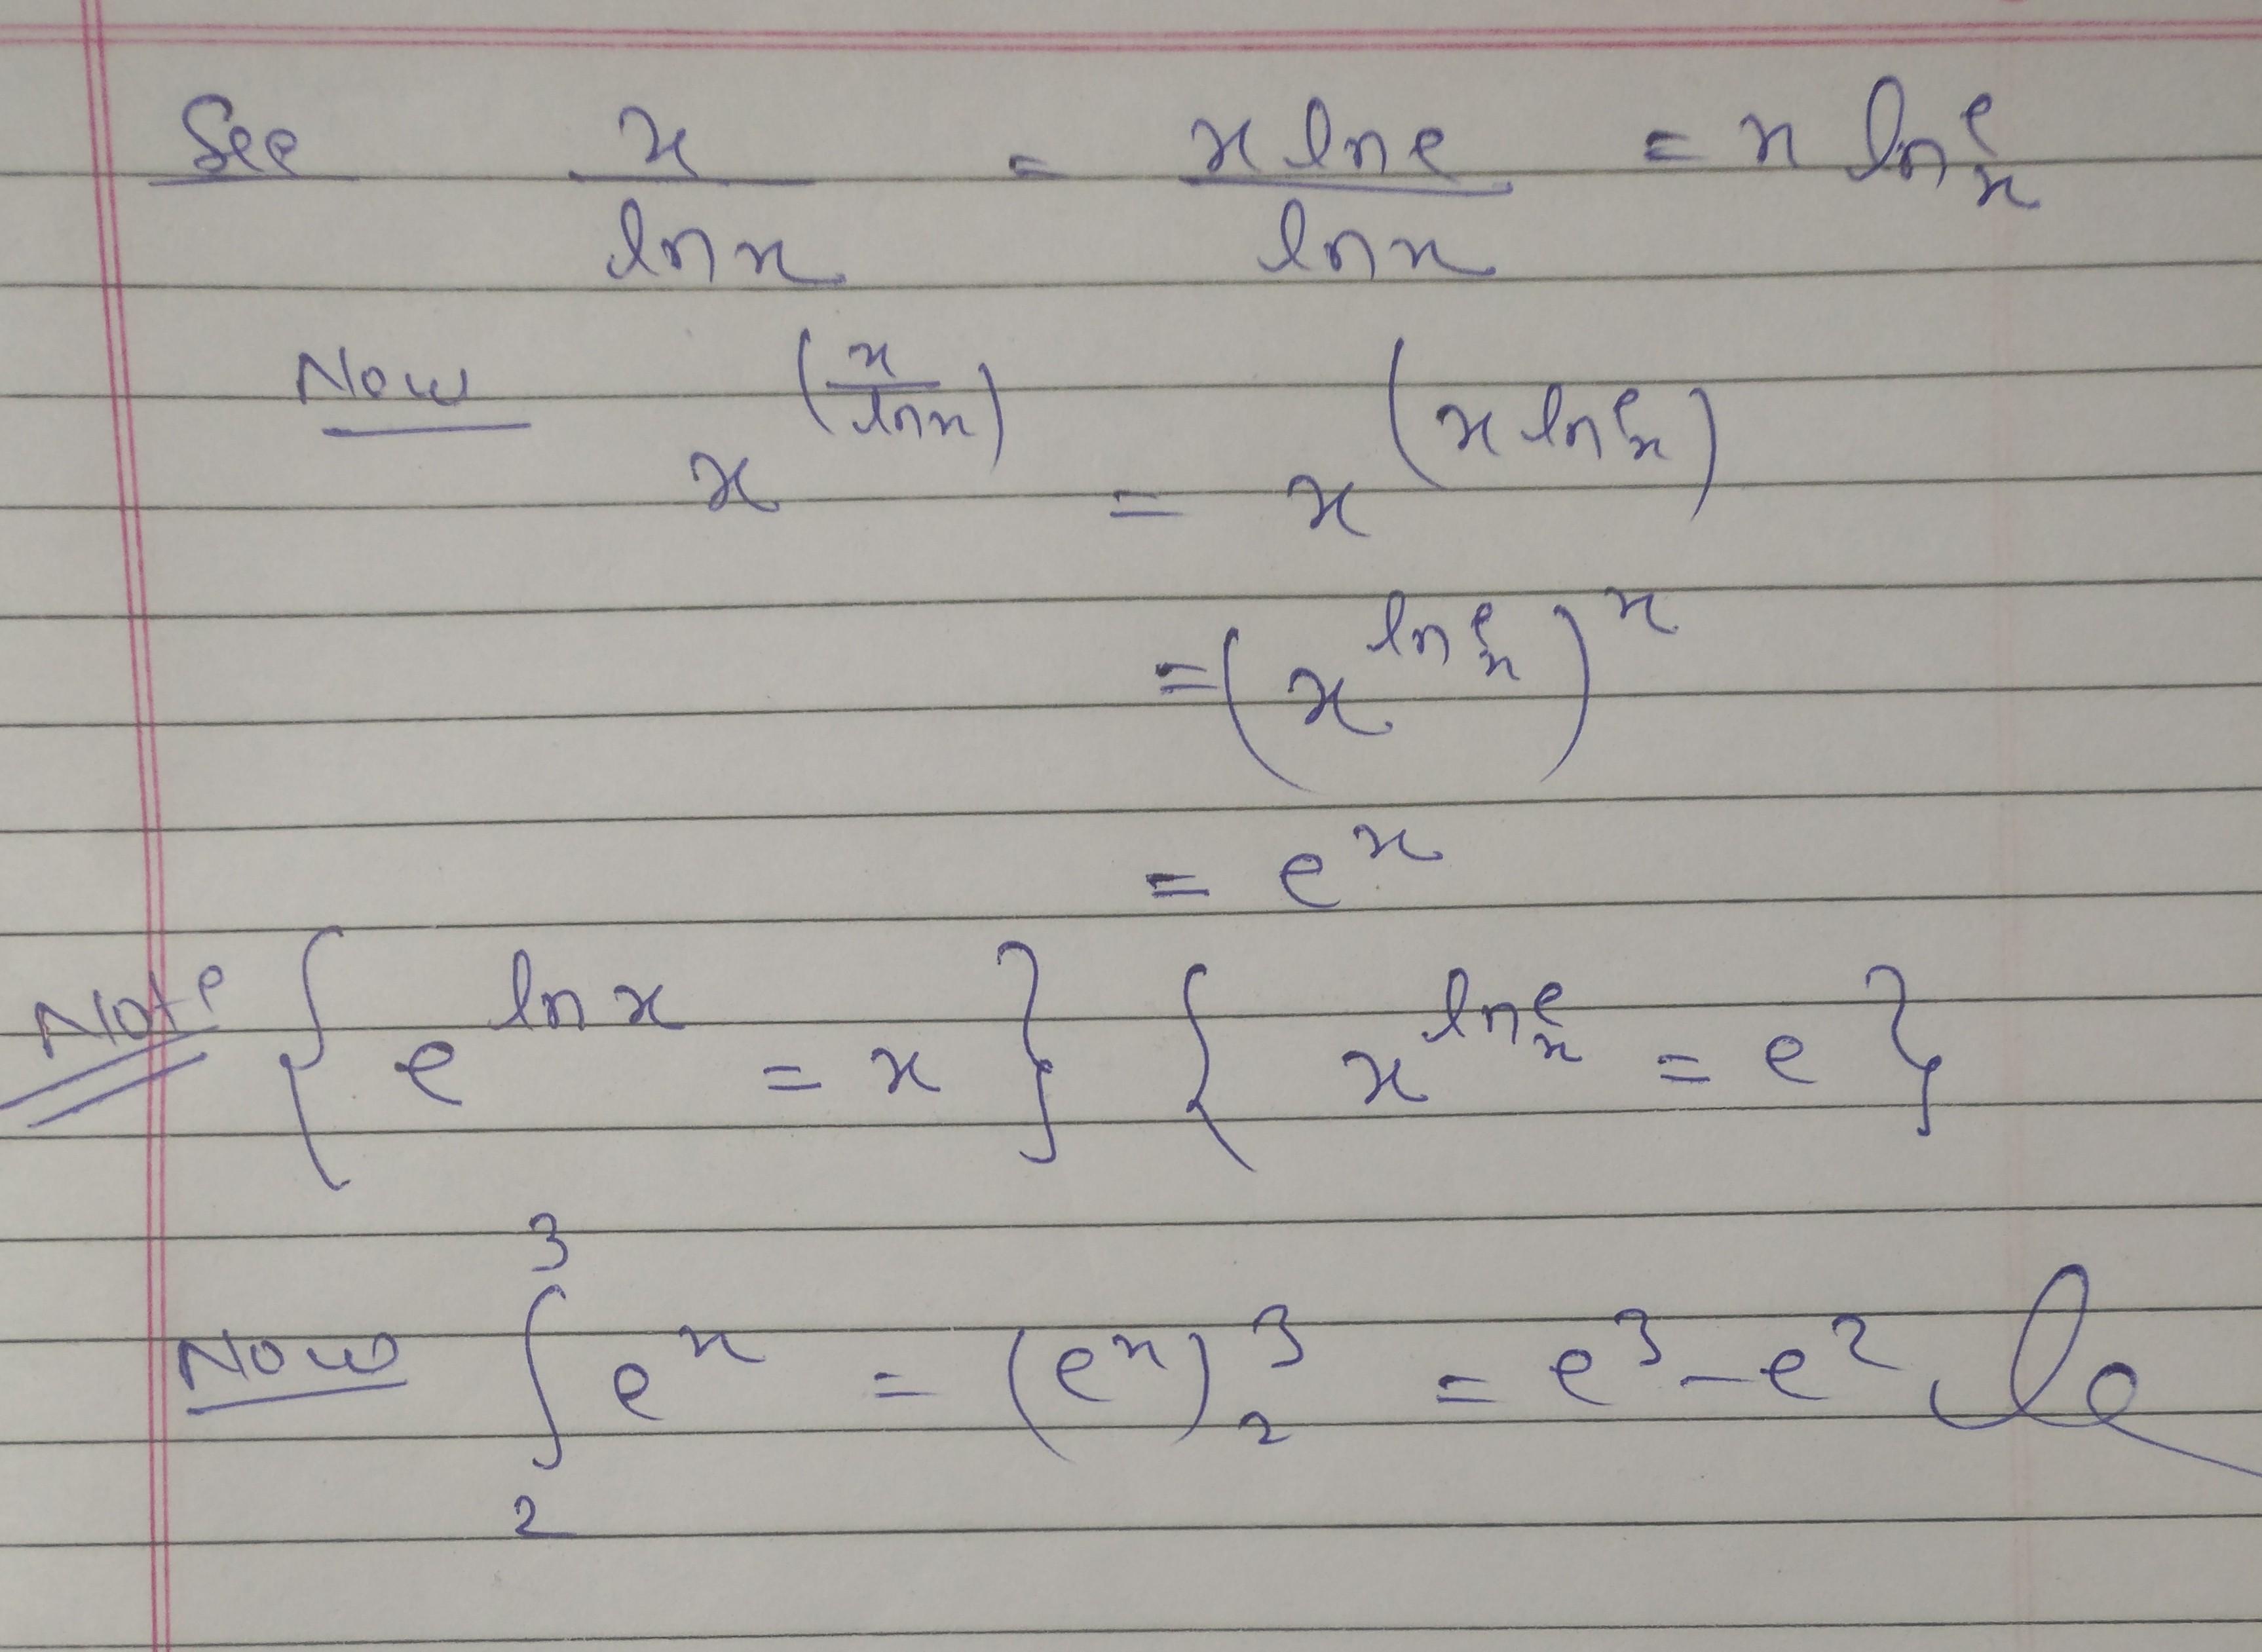 See x/ln x = x ln e/ln x = x ln_x^e
Now x^(x/ln x) = x^(x ln_x^e)
= (x^(ln_x^e))^x
= e^x
Note {e^(ln x) = x} {x^(ln_x^e) = e}
Now ∫_2^3 e^x = (e^x)_2^3 = e^3 - e^2